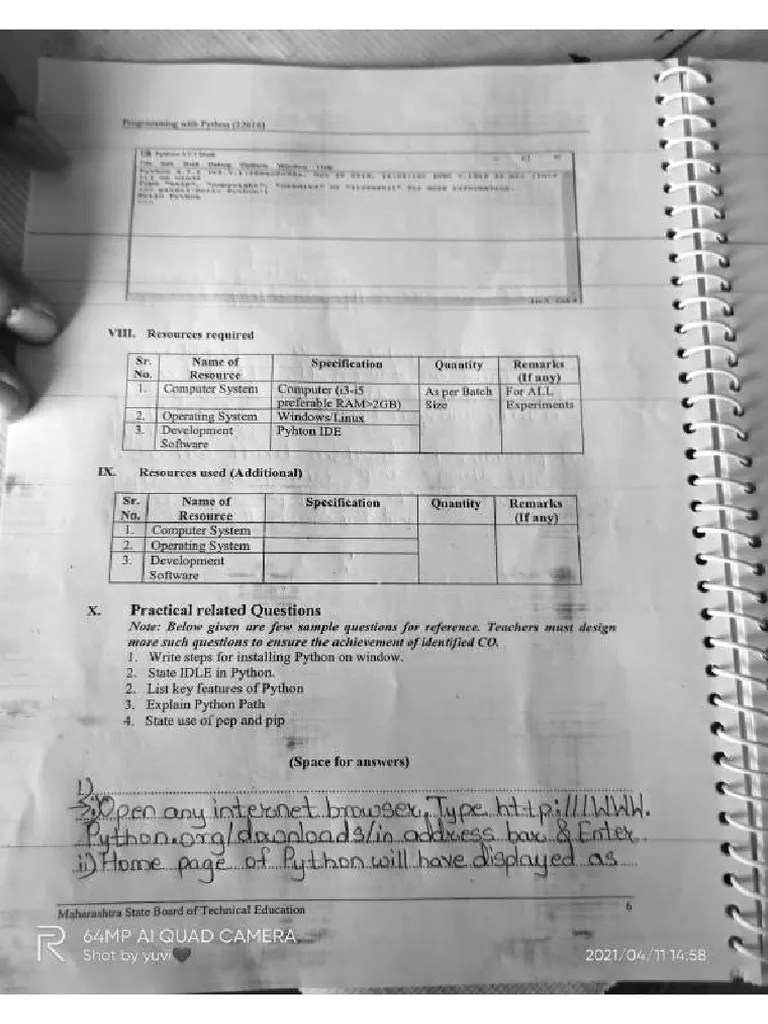 Programming with Python (22616)
VIII. Resources required
Sr. No. Name of Resource Specification Quantity Remarks (If any)
1. Computer System Computer (i3-i5 preferable RAM>2GB) As per Batch Size For ALL Experiments
2. Operating System Windows/Linux
3. Development Software Pyhton IDE
IX. Resources used (Additional)
Sr. No. Name of Resource Specification Quantity Remarks (If any)
1. Computer System
2. Operating System
3. Development Software
X. Practical related Questions
Note: Below given are few sample questions for reference. Teachers must design
more such questions to ensure the achievement of identified CO.
1. Write steps for installing Python on window.
2. State IDLE in Python.
2. List key features of Python
3. Explain Python Path
4. State use of pep and pip
(Space for answers)
1)
i) Open any internet browser. Type http:///WWW.
Python.org/downloads/in address bar & Enter
ii) Home page of Python will have displayed as
Maharashtra State Board of Technical Education 6
R 64MP AI QUAD CAMERA
Shot by yuvi🖤
2021/04/11 14:58